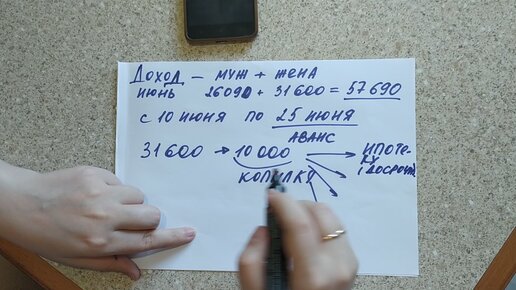 ДОХОД – МУЖ + ЖЕНА
ИЮНЬ 26090 + 31600 = 57690
С 10 ИЮНЯ ПО 25 ИЮНЯ
АВАНС
31600 → 10 000 → ИПОТЕ-
КУ
КОПИЛКА